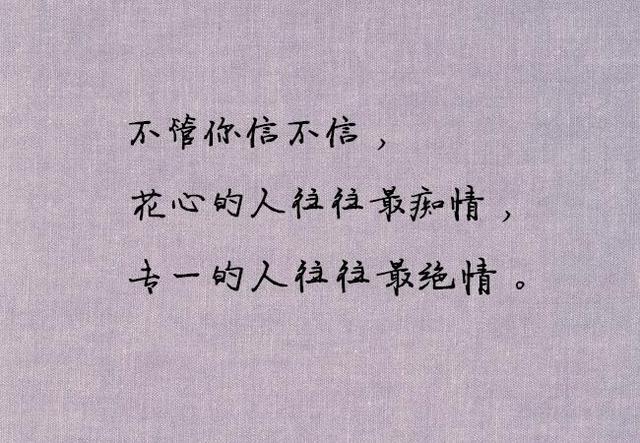 不管你信不信，
花心的人往往最痴情，
专一的人往往最绝情。